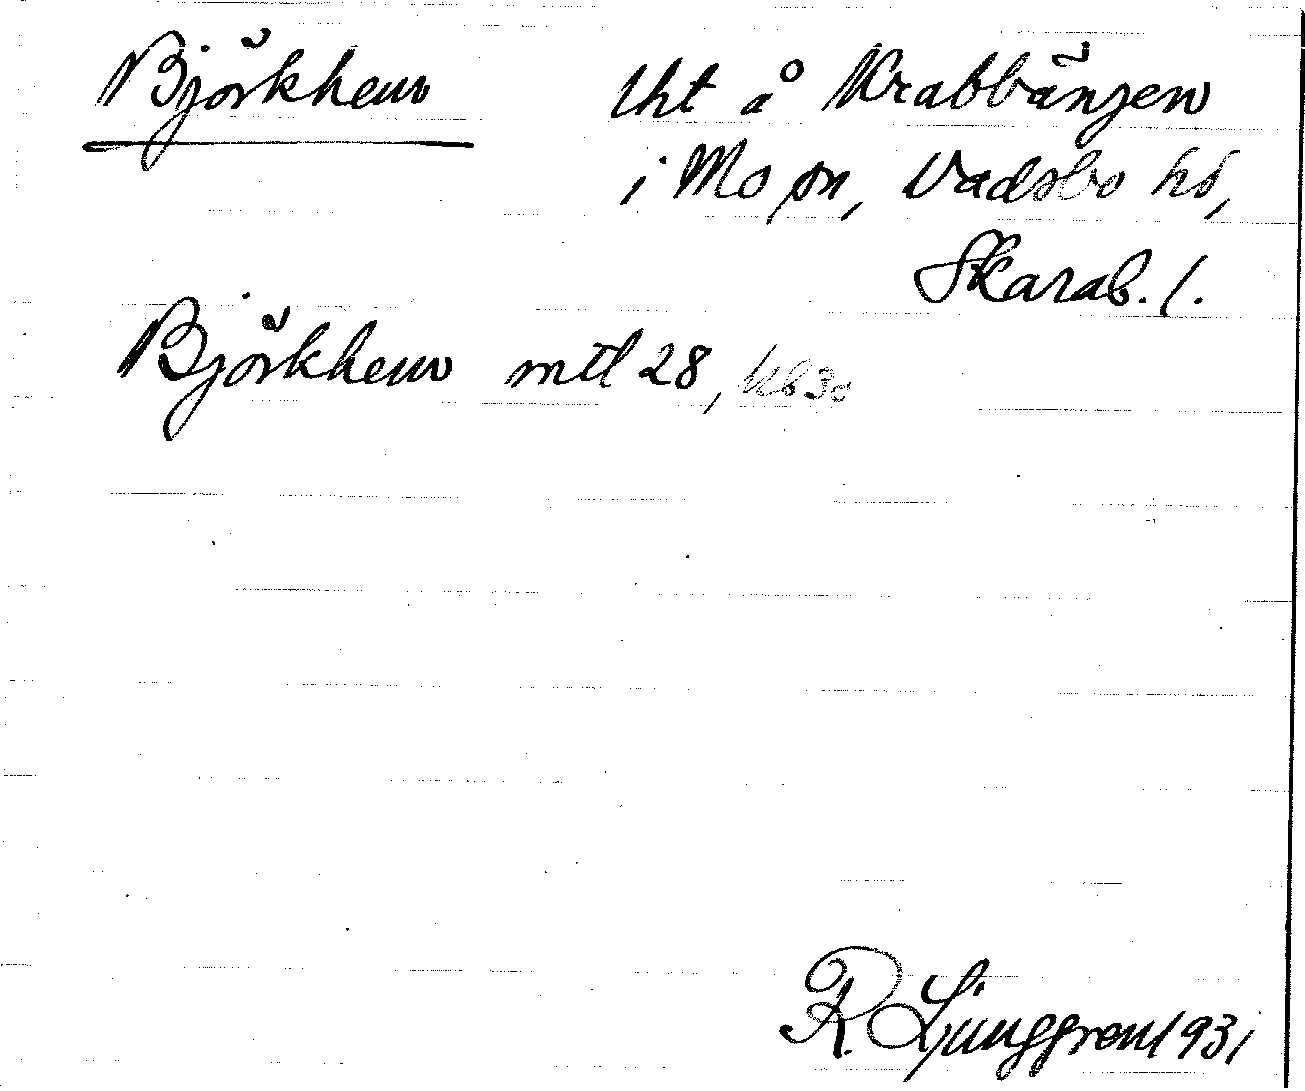 Björkhem lht å Krabbängen
i Mo sn, Vadsbo hd,
Skarab. l.
Björkhem mtl 28, kb 30
R. Ljunggren 1931